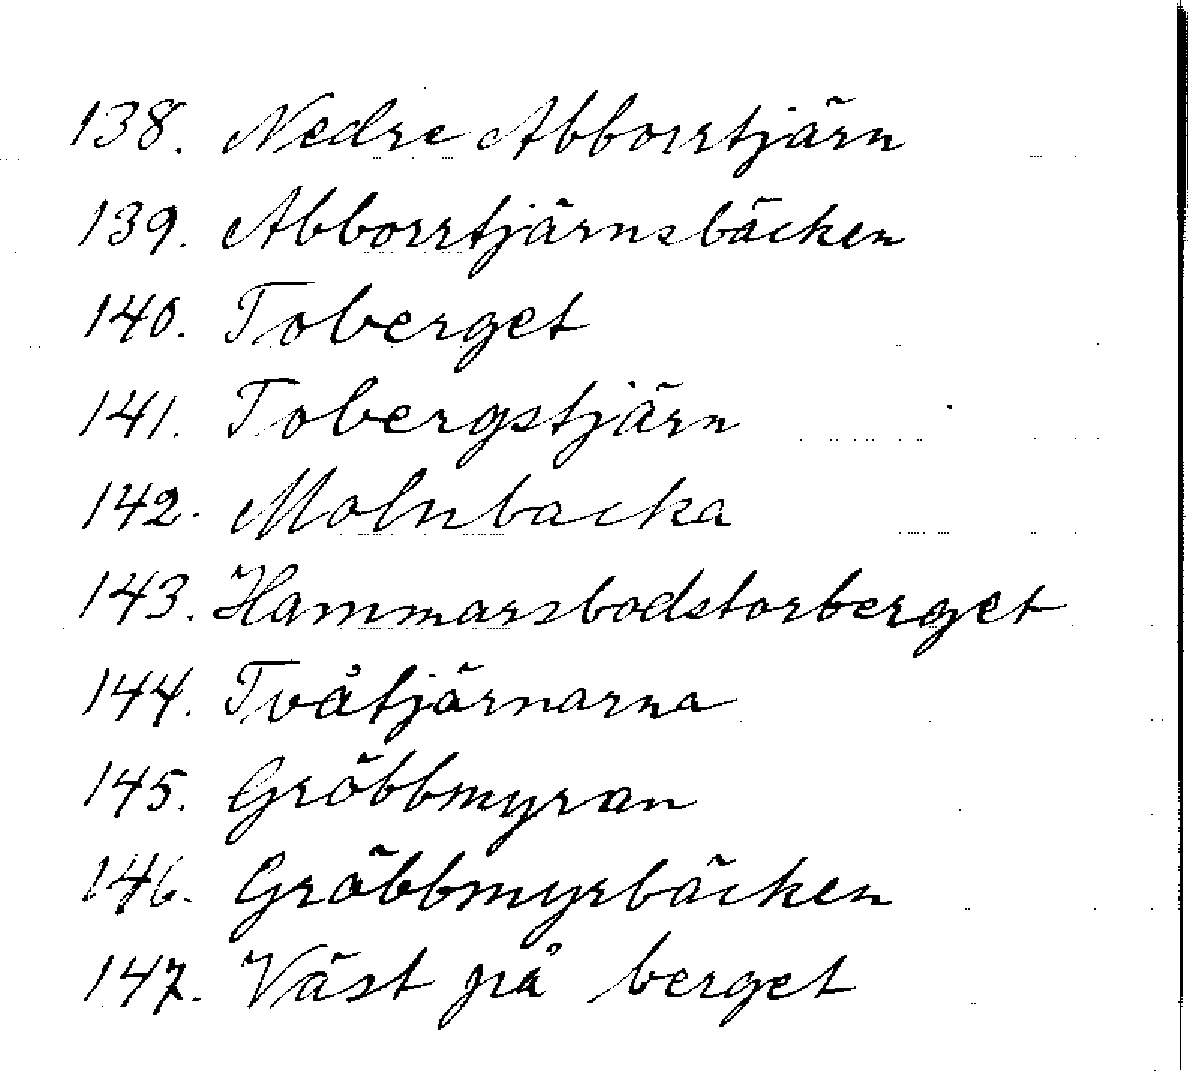 138. Nedre Abborrtjärn
139. Abborrtjärnsbäcken
140. Toberget
141. Tobergstjärn
142. Molnbacka
143. Hammarsbodstorberget
144. Tvåtjärnarna
145. Gröbbmyran
146. Gröbbmyrbäcken
147. Väst på berget